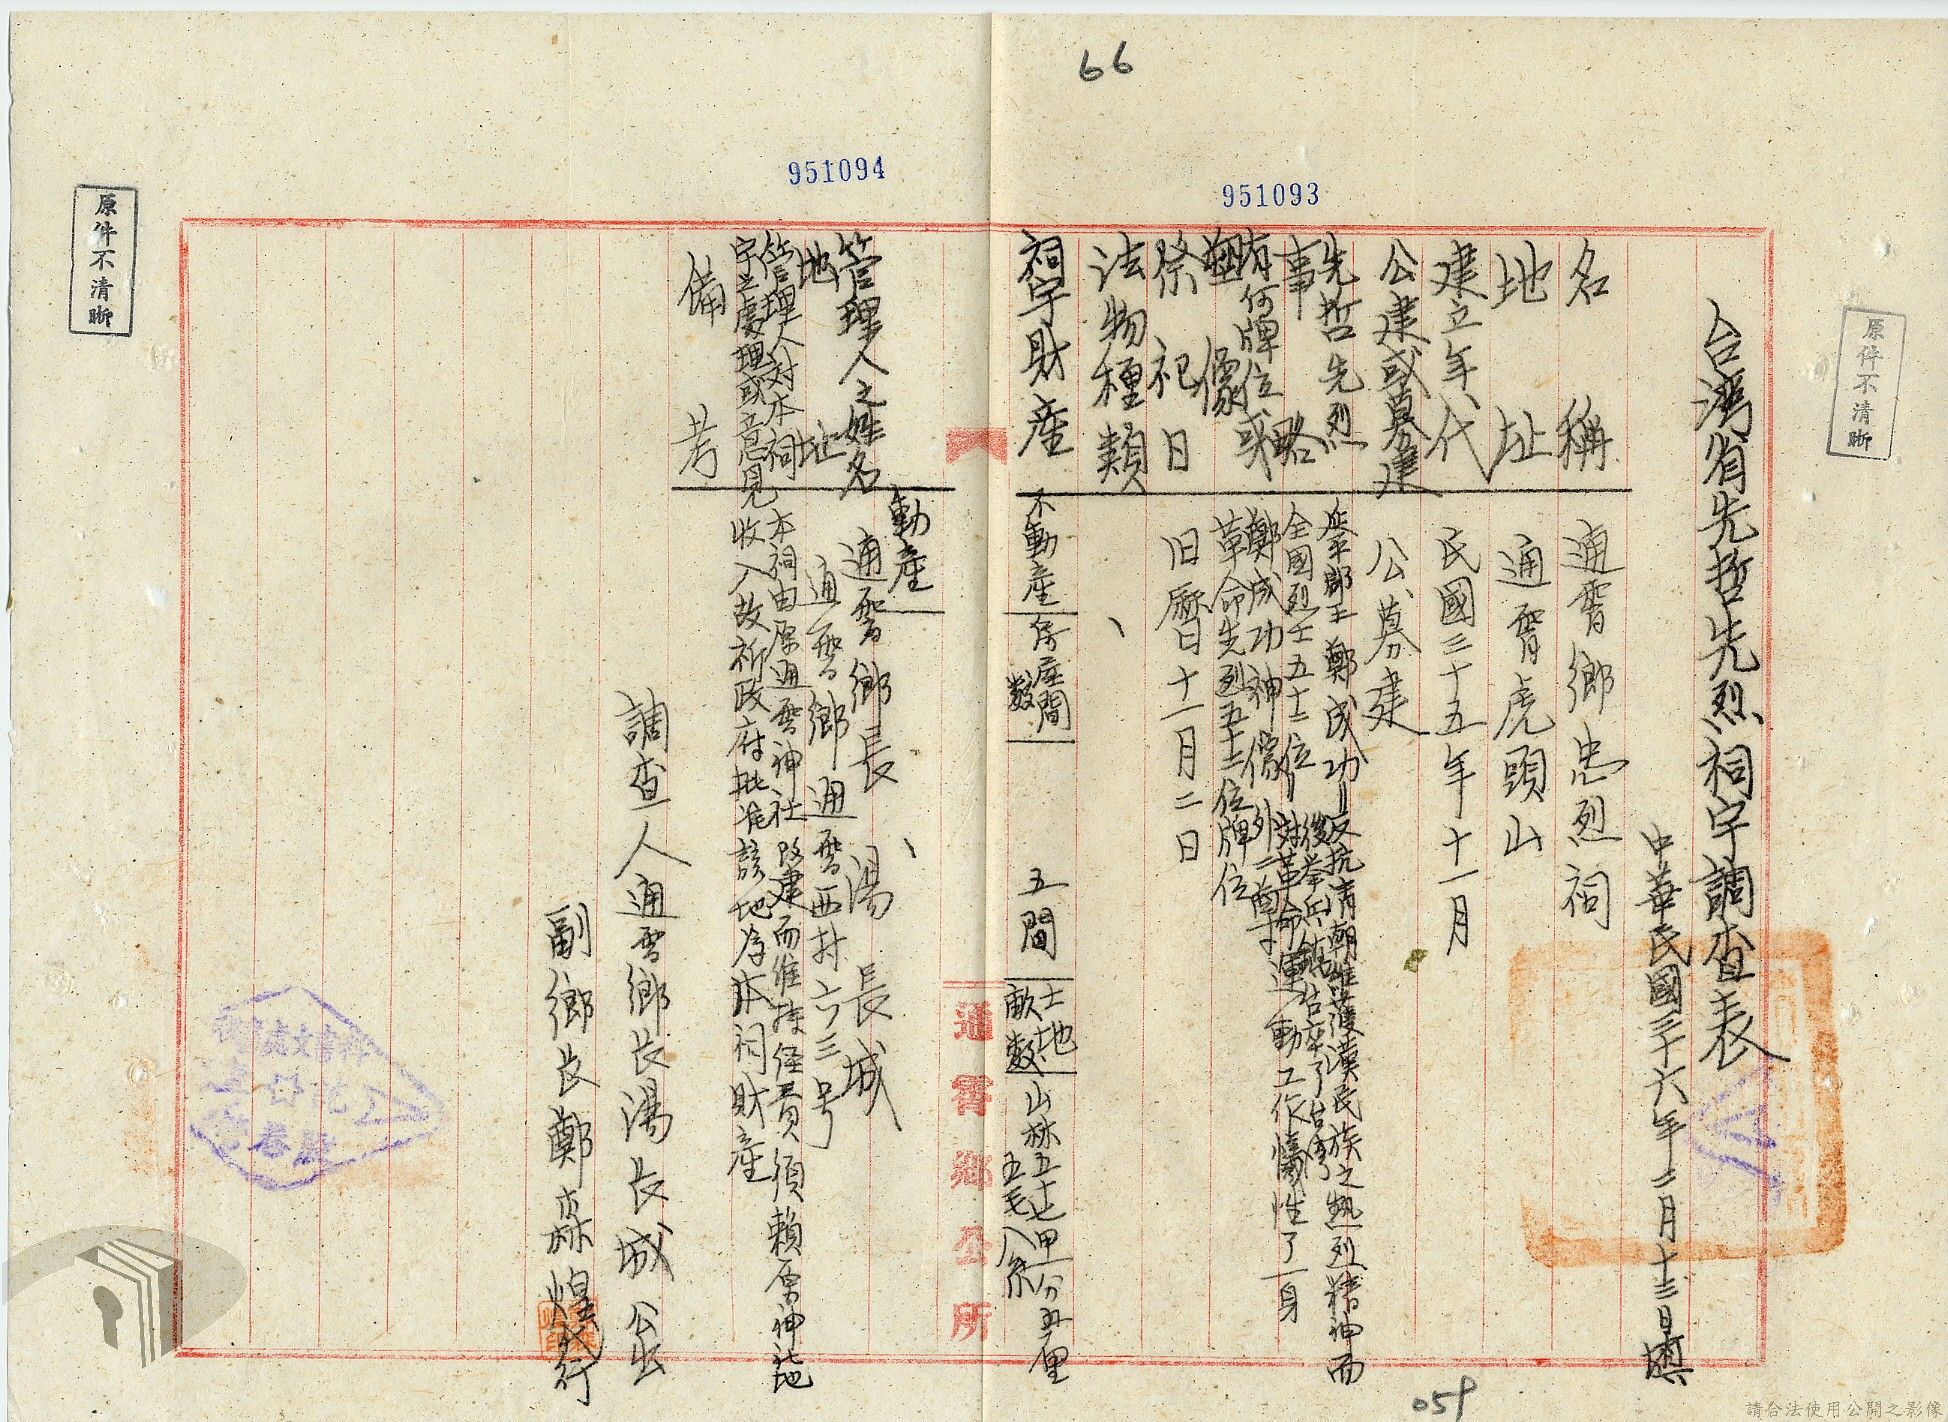 66
951093
951094
原件不清晰
原件不清晰
台湾省先哲先烈祠宇調査表
中華民國三十六年二月十三日填
名稱 通霄鄉忠烈祠
地址 通霄虎頭山
建立年代 民國三十五年十一月
公建或募建 公募建
先哲先烈事略 延平郡王鄭成功—反抗清朝維護漢民族之熱烈精神而後挙兵 台 了台湾
全國烈士五十二位—対革命運動工作犧牲了一身
有何牌位或塑像 鄭成功神像外一尊
革命先烈五十二位牌位
祭祀日 旧曆十一月二日
法物種類 、
祠宇財産 不動産 房屋間数 五間 土地畝数 山林五十七甲一分五厘五毛八糸
動産 、
管理人之姓名 通霄鄉長 湯長城
地址 通霄鄉通霄西村六三号
管理人対本祠宇之處理或意見 本祠由原通霄神社改建而維持経費須賴原神社地
收入故祈政府批准該地為本祠財産
備考
調查人通霄鄉長湯長城公出
副鄉長鄭森煌代行
通霄鄉公所
059
請合法使用公開之影像